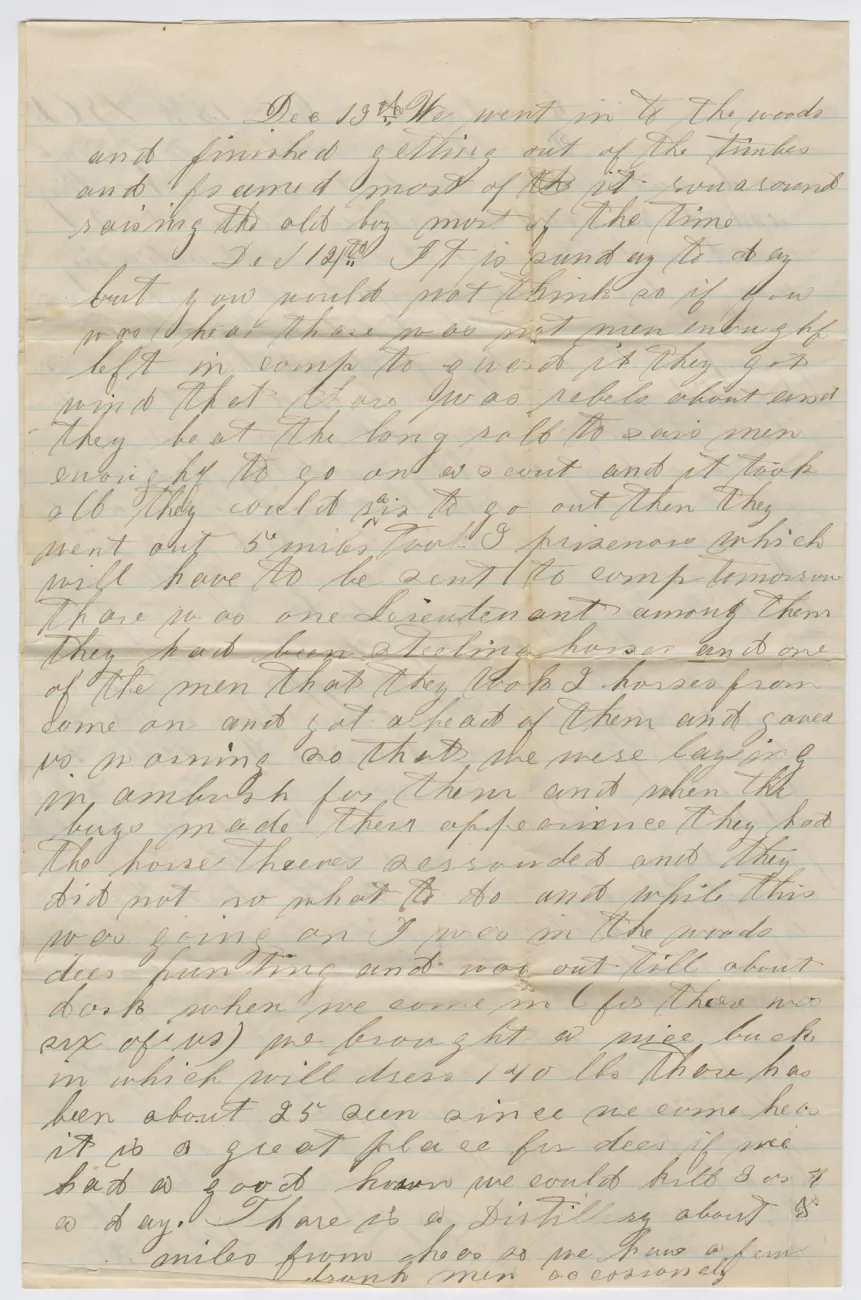 Dec 13th We went in to the woods
and finished getting out of the timber
and framed most of the it run around
raising the old boy most of the time
Dec 14th It is sunday to day
but you would not think so if you
was hear thare was not men enough
left in camp to guard it they got
wind that thare was rebels about and
they beat the long roll to rais men
enough to go on a scout and it took
all they could rais to go out then they
went out 5 miles took prisenors which
will have to be sent to camp tomorrow
thare was one Lieutenant among them
they had been steeling horses and one
of the men that they took horses from
come on and got ahead of them and gave
us warning so that we were laying
in ambush for them and when the
boys made their appearience they had
the horse theeves serrounded and they
did not no what to do and while this
was going on I was in the woods
deer hunting and was out till about
dark when we come in (for there was
six of us) we brought a nice buck
in which will dress 140 lbs thare has
been about 25 seen since we come hear
it is a great place for deer if we
had a good we could kill 3 or 4
a day. Thare is a Distillery about
miles from hear so we have a few
drunk men occasionely